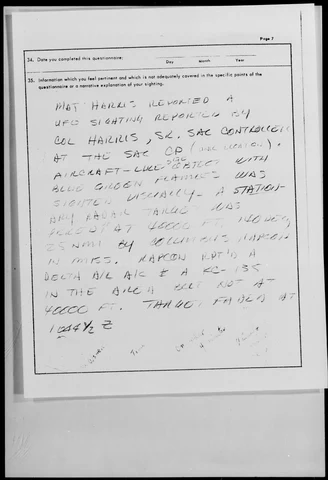 Page 7
34. Date you completed this questionnaire:
Day Month Year
35. Information which you feel pertinent and which is not adequately covered in the specific points of the
questionnaire or a narrative explanation of your sighting.
MAJ HARRIS REPORTED A
UFO SIGHTING REPORTED BY
COL HARRIS, SR. SAC CONTROLLER
AT THE SAC CP
AIRCRAFT-LIKE SIZE OBJECT WITH
BLUE GREEN FLAMES WAS
SIGHTED VISUALLY. A STATION-
ARY RADAR TARGET WAS
AT 40000 FT.
25 NMI BY COLUMBUS RAPCON
IN MISS. RAPCON RPT'D A
DELTA A/L A/C & A KC-135
IN THE AREA BUT NOT AT
40000 FT. TARGET FADED AT
1044½ Z